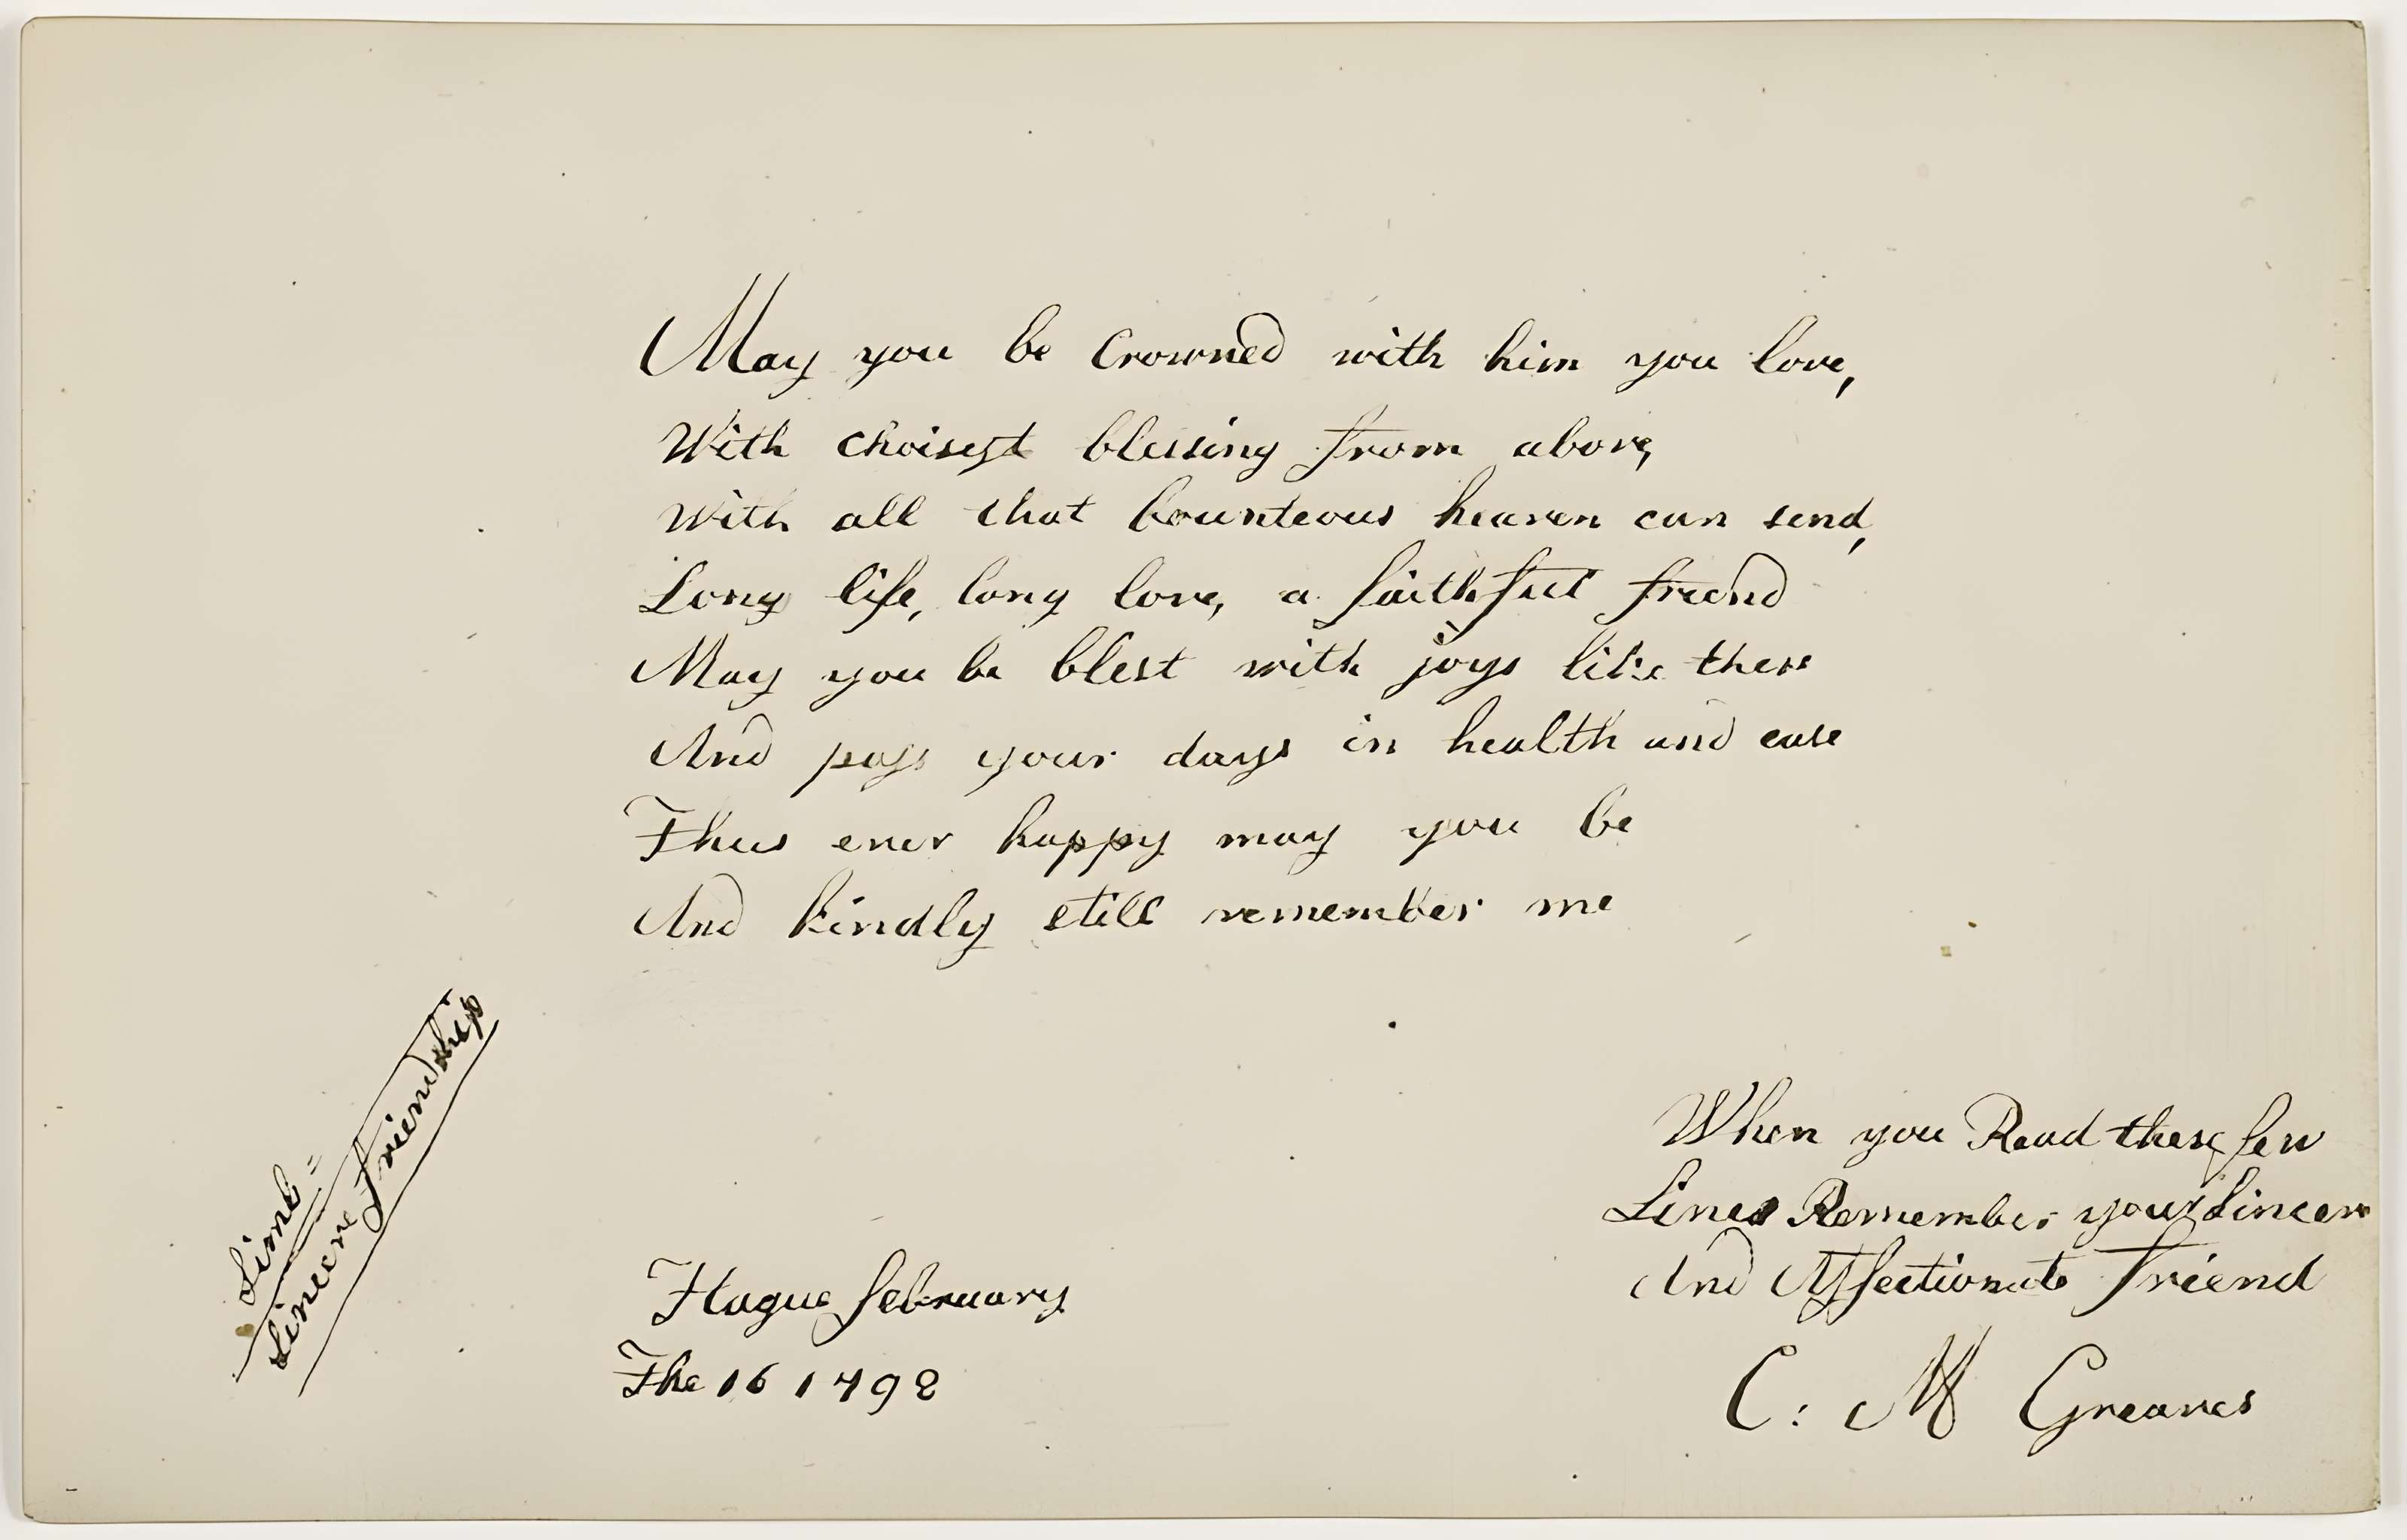 May you be Crowned with him you love,
With choisest blessing from above,
With all that bounteous heaven can send,
Long life, long love, a faithful friend
May you be blest with joys like these
And pass your days in health and ease
Thus ever happy may you be
And kindly still remember me
Simb=
Sincere friendship
Hague february
The 16 1792
When you Read these few
Lines Remember your Sincere
And Affectionate Friend
C: M Greaves